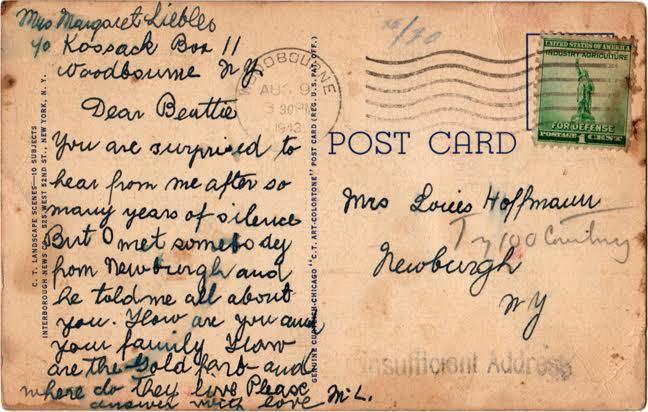 Mrs Margaret Liebles
c/o Kossack Box 11
Woodbourne NY.
Dear Beattie
You are surprised to
hear from me after so
many years of silence
But I met somebody
from Newburgh and
he told me all about
you. How are you and
your family How
are the Gold farb and
where do they live Please
answer with love M.L.
C. T. LANDSCAPE SCENES—10 SUBJECTS
INTERBOROUGH NEWS CO. 525 WEST 52ND ST., NEW YORK, N. Y.
GENUINE CURTEICH-CHICAGO "C. T. ART-COLORTONE" POST CARD (REG. U. S. PAT. OFF.)
WOODBOURNE
AUG 9
3 30 PM
1943
UNITED STATES OF AMERICA
INDUSTRY AGRICULTURE
FOR DEFENSE
POSTAGE 1 CENT
POST CARD
Mrs Louies Hoffmann
Try 100
Newburgh
NY
Insufficient Address